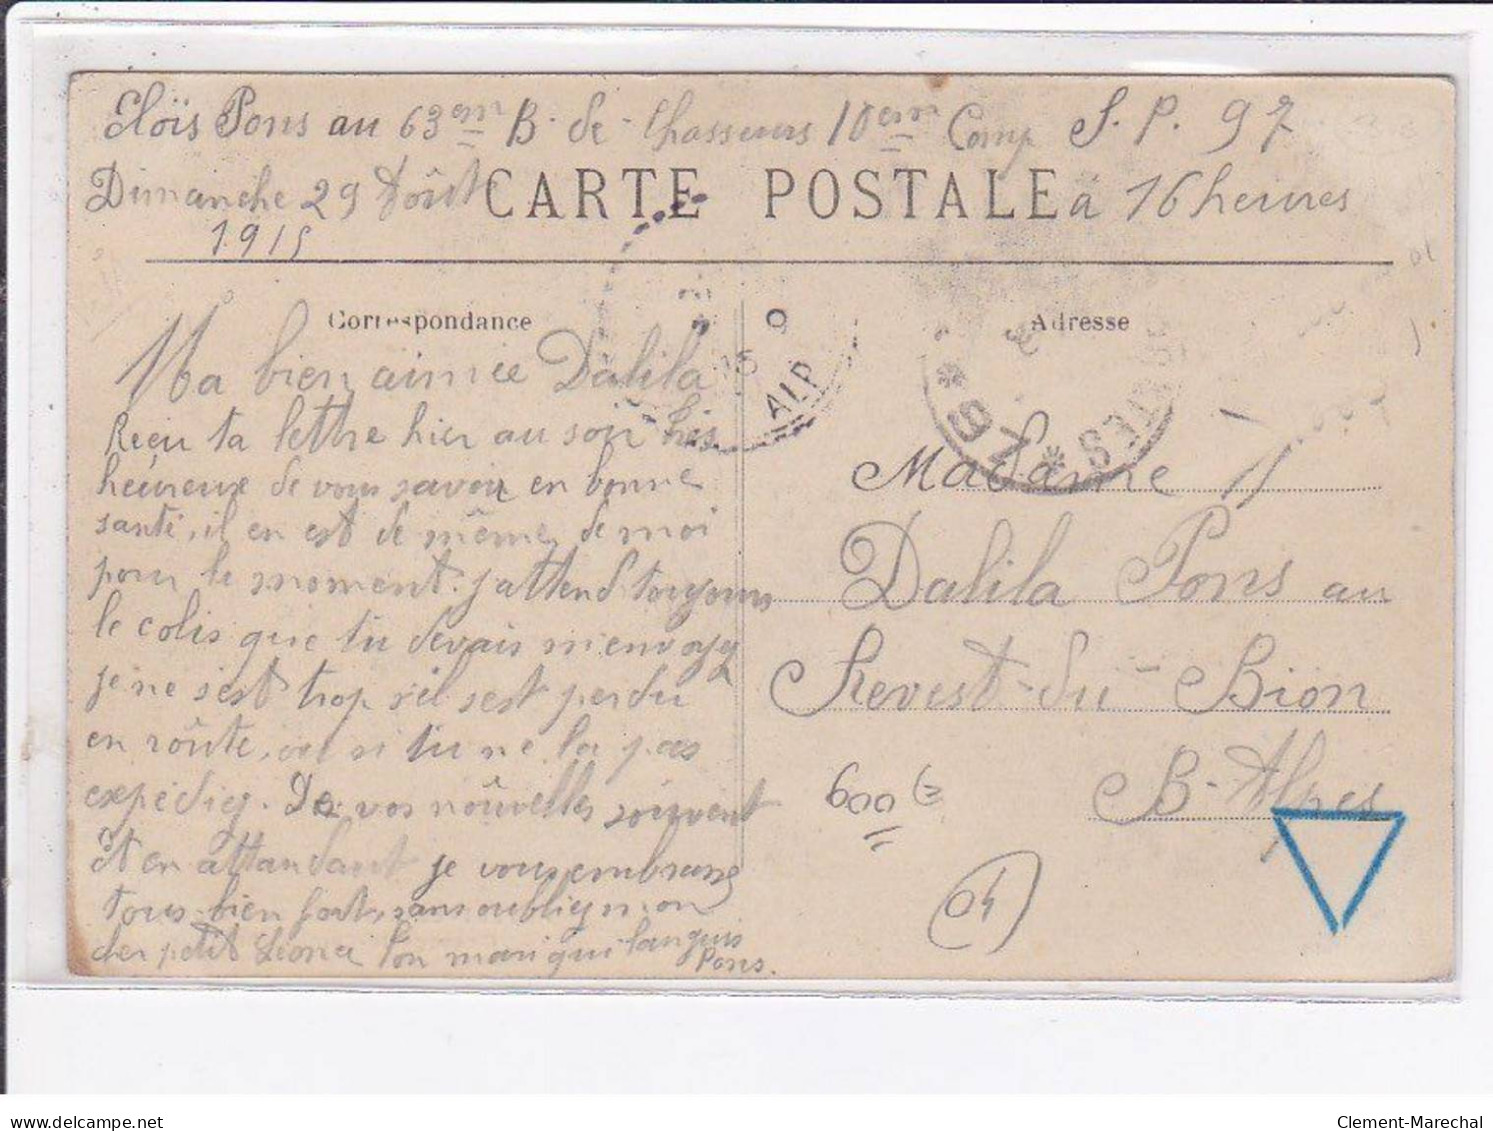 Eloïs Pons au 63em B. de Chasseurs 10em Comp S. P. 97
Dimanche 29 Août CARTE POSTALE à 16 heures
1915
Correspondance
Ma bien aimée Dalila
Reçu ta lettre hier au soir très
heureux de vous savoir en bonne
santé, il en est de même de moi
pour le moment. j'attend toujours
le colis que tu devais m'envoyez
je ne s'est trop s'il s'est perdu
en rôute, ou si tu ne la pas
expédiez. De vos nôuvelles souvent
Et en attandant je vous embrasse
tous bien fort, sans oubliez mon
cher petit Léonce ton mari qui languis
Pons.
9
15
ALP
Adresse
* 97 * POSTES
Madame
Dalila Pons au
Revest-du-Bion
B-Alpes
600 E
04
Clement-Marechal
delcampe.net